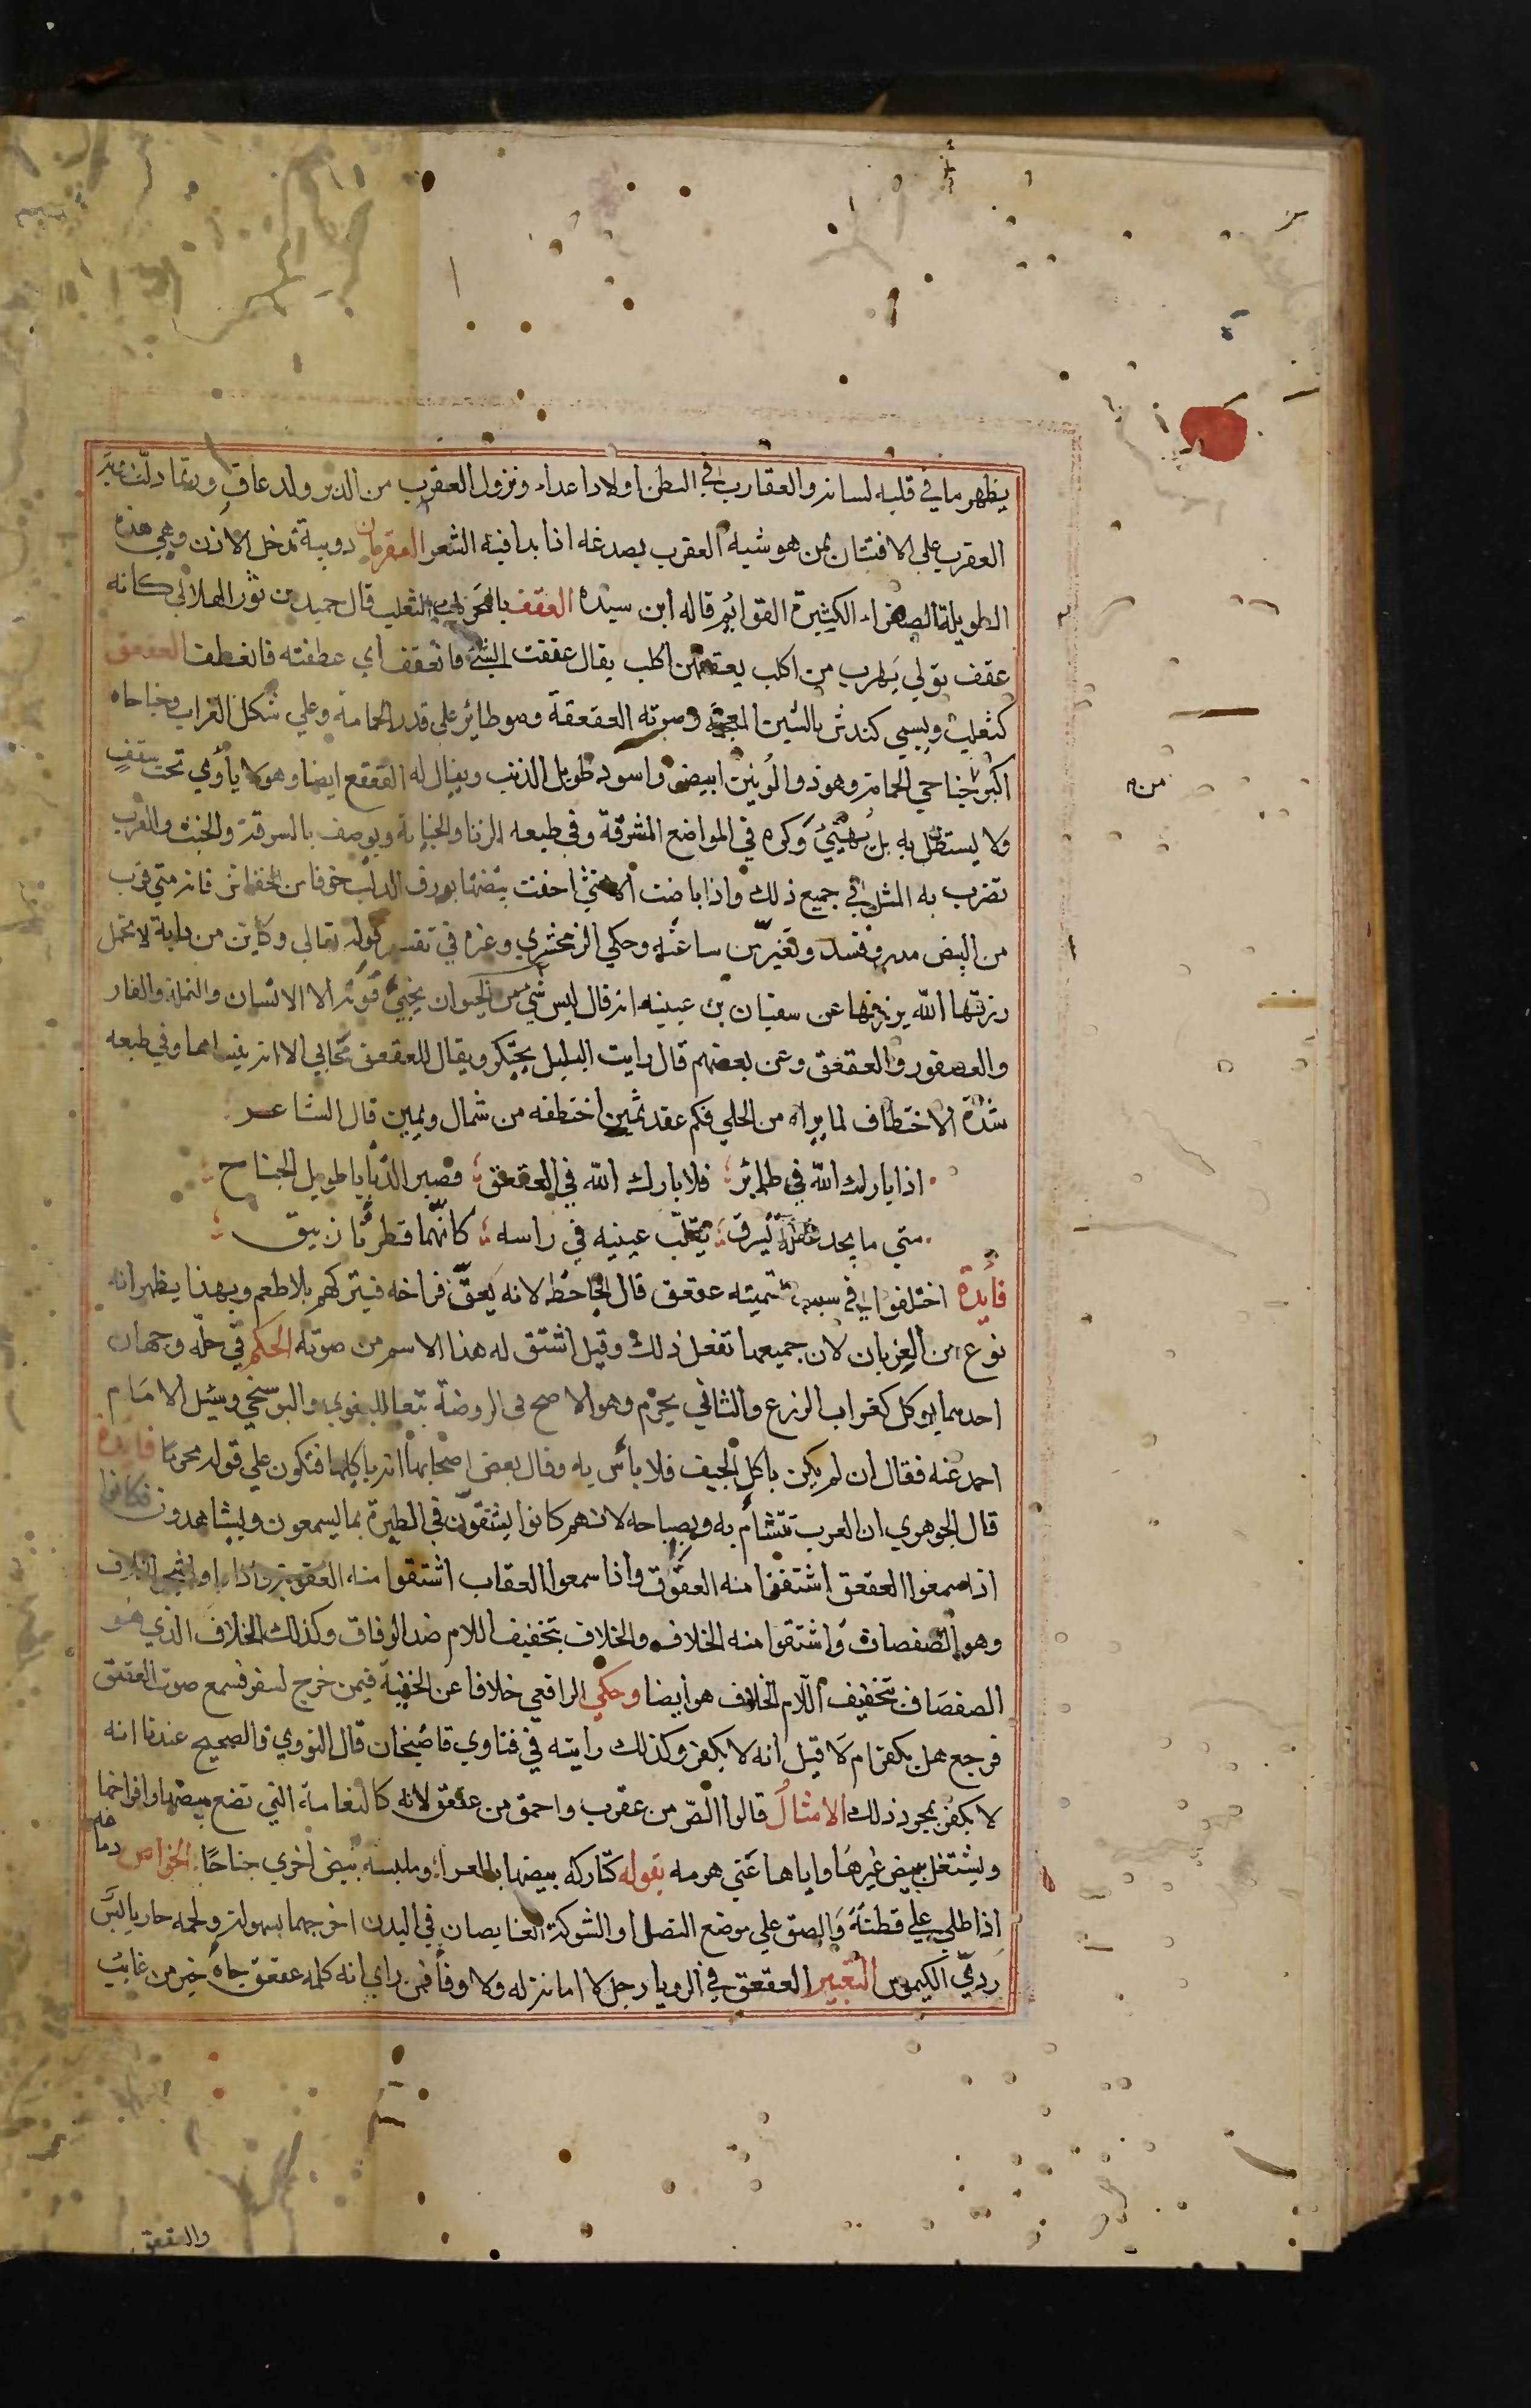 يظهر ما في قلبه لسانه والعقارب في البطن اولاد اعداء ونزول العقرب من الدبر ولد عاق وربما دلت
العقرب علي الافتتان بمن هو شبه العقرب بصدغه اذا بدا فيه الشعر العقربان دويبة تدخل الاذن وهي هذه
الطويلة الصفراء الكثيرة القوايم قاله ابن سيده العقف الثعلب قال حميد بن ثور الهلالي كانه
عقف تولي يهرب من اكلب يعقفهن اكلب يقال عقفت الشئ فانعقف اي عطفته فانعطف العقعق
كثعلب ويسمي كندش بالشين المعجمة وصوته العقعقة وهو طاير علي قدر الحمامة وعلي شكل الغراب وجناحاه
اكبر من جناحي الحمامة وهو ذو لونين ابيض واسود طويل الذنب ويقال له القعقع ايضا وهو لا يأوي تحت سقف
ولا يستظل به بل يهيئ وكره في المواضع المشرفة وفي طبعه الزنا والخيانة ويوصف بالسرقة والخبث والعرب
تضرب به المثل في جميع ذلك واذا باضت الانثي اخفت بيضها بورق الدلب خوفا من الخفاش فانه متي قرب
من البيض مدر وفسد وتغير من ساعته وحكي الزمخشري وغيره في تفسير قوله تعالي وكاين من دابة لا تحمل
رزقها الله يرزقها عن سفيان بن عيينه انه قال ليس شي من الحيوان يخبئ قوته الا الانسان والنملة والفار
والعصفور والعقعق وعن بعضهم قال رايت البلبل يحتكر ويقال للعقعق مخابي الا انه ينساها وفي طبعه
شدة الاختطاف لما يراه من الحلي فكم عقد ثمين اختطفه من شمال ويمين قال الشاعر
اذا بارك الله في طائر فلا بارك الله في العقعق قصير الذنابا طويل الجناح
متي ما يجد غفلة يسرق يقلب عينيه في راسه كانهما قطرتا زيبق
فايدة اختلفوا في سبب تسميته عقعق قال الجاحظ لانه يعق فراخه فيتركهم بلا طعم وبهذا يظهر انه
نوع من الغربان لان جميعها تفعل ذلك وقيل اشتق له هذا الاسم من صوته الحكم في حله وجهان
احدهما يوكل كغراب الزرع والثاني يحرم وهو الاصح في الروضة تبعا للبغوي والبوسنجي وسيل الامام
احمد عنه فقال ان لم يكن ياكل الجيف فلا بأس به وقال بعض اصحابها انه ياكلها فتكون علي قوله محرما فايدة
قال الجوهري ان العرب تتشأم به وبصياحه لانهم كانوا يشتقون في الطيرة بما يسمعون ويشاهدون فكانوا
اذا سمعوا العقعق اشتقوا منه العقوق واذا سمعوا العقاب اشتقوا منه العقوبة واذا الخلاف
وهو الصفصاف واشتقوا منه الخلاف والخلاف بتخفيف اللام ضد الوفاق وكذلك الخلاف الذي هو
الصفصاف تخفيف اللام الخلاف هو ايضا وحكي الرافعي خلافا عن الحنفية فيمن خرج لسفر فسمع صوت العقعق
فرجع هل يكفر ام لا قيل انه لا يكفر وكذلك رايته في فتاوي قاضيخان قال النووي والصحيح عندنا انه
لا يكفر بمجرد ذلك الامثال قالوا الص من عقرب واحمق من عقعق لانه كالنعامة التي تضع بيضها وافراخها
ويشتغل ببيض غيرها واياها عني هرمه بقوله كتاركه بيضها بالعرا وملبسه بيض اخري جناحا الخواص دماغه
اذا طلي علي قطنة والصق علي موضع النصل او الشوكة الغايصان في البدن اخرجهما بسهولة ولحمه حار يابس
ردي الكيموس التعبير العقعق في الرويا رجل لا امانة له ولا وفا فمن راي انه كلمه عقعق جاه خبر من غايب
والعقعق